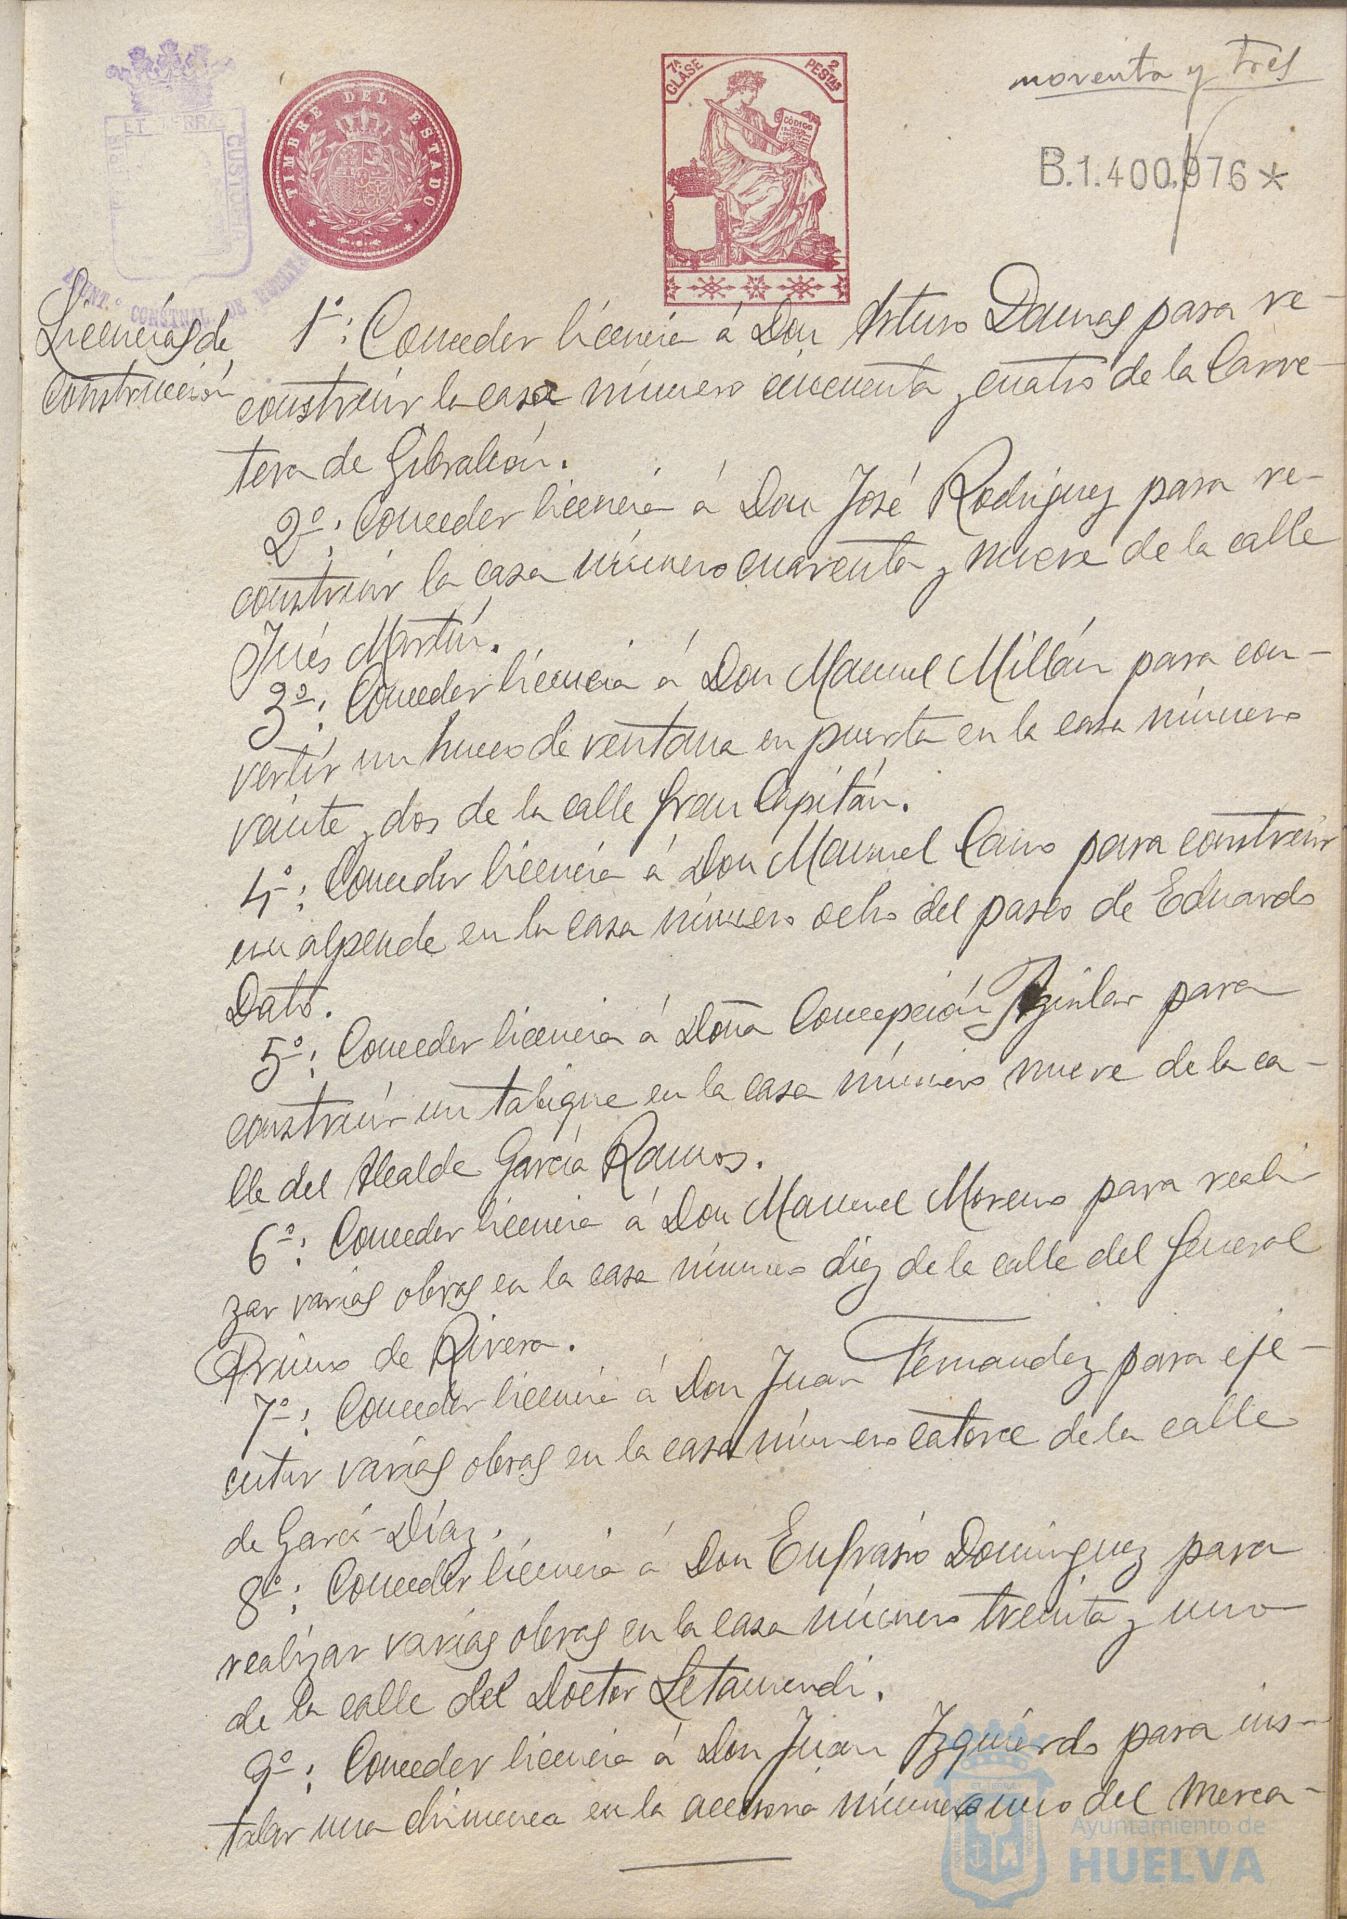 noventa y tres
TIMBRE DEL ESTADO
7ª CLASE
2 PESTAS
CÓDIGO
B.1.400.976*
PORTUS MARIS ET TERRÆ CUSTODIA
AYUNT.º CONSTNAL. DE HUELVA
Licencias de
construcción
1º: Conceder licencia á Don Arturo Damas para re-
construir la casa número cincuenta y cuatro de la Carre-
tera de Gibraleón.
2º: Conceder licencia á Don José Rodríguez para re-
construir la casa número cuarenta y nueve de la calle
Inés Martín.
3º: Conceder licencia á Don Manuel Millán para con-
vertir un hueco de ventana en puerta en la casa número
veinte y dos de la calle Gran Capitán.
4º: Conceder licencia á Don Manuel Cano para construir
un alpende en la casa número ocho del paseo de Eduardo
Dato.
5º: Conceder licencia á Doña Concepción Aguilar para
construir un tabique en la casa número nueve de la ca-
lle del Alcalde García Ramos.
6º: Conceder licencia á Don Manuel Moreno para reali-
zar varias obras en la casa número diez de la calle del General
Primo de Rivera.
7º: Conceder licencia á Don Juan Fernandez para eje-
cutar varias obras en la casa número catorce de la calle
de Garci-Díaz.
8º: Conceder licencia á Don Eufrasio Dominguez para
realizar varias obras en la casa número treinta y uno
de la calle del Doctor Letamendi.
9º: Conceder licencia á Don Juan Izquierdo para ins-
talar una chimenea en la accesoria número uno del Merca-
Ayuntamiento de
HUELVA